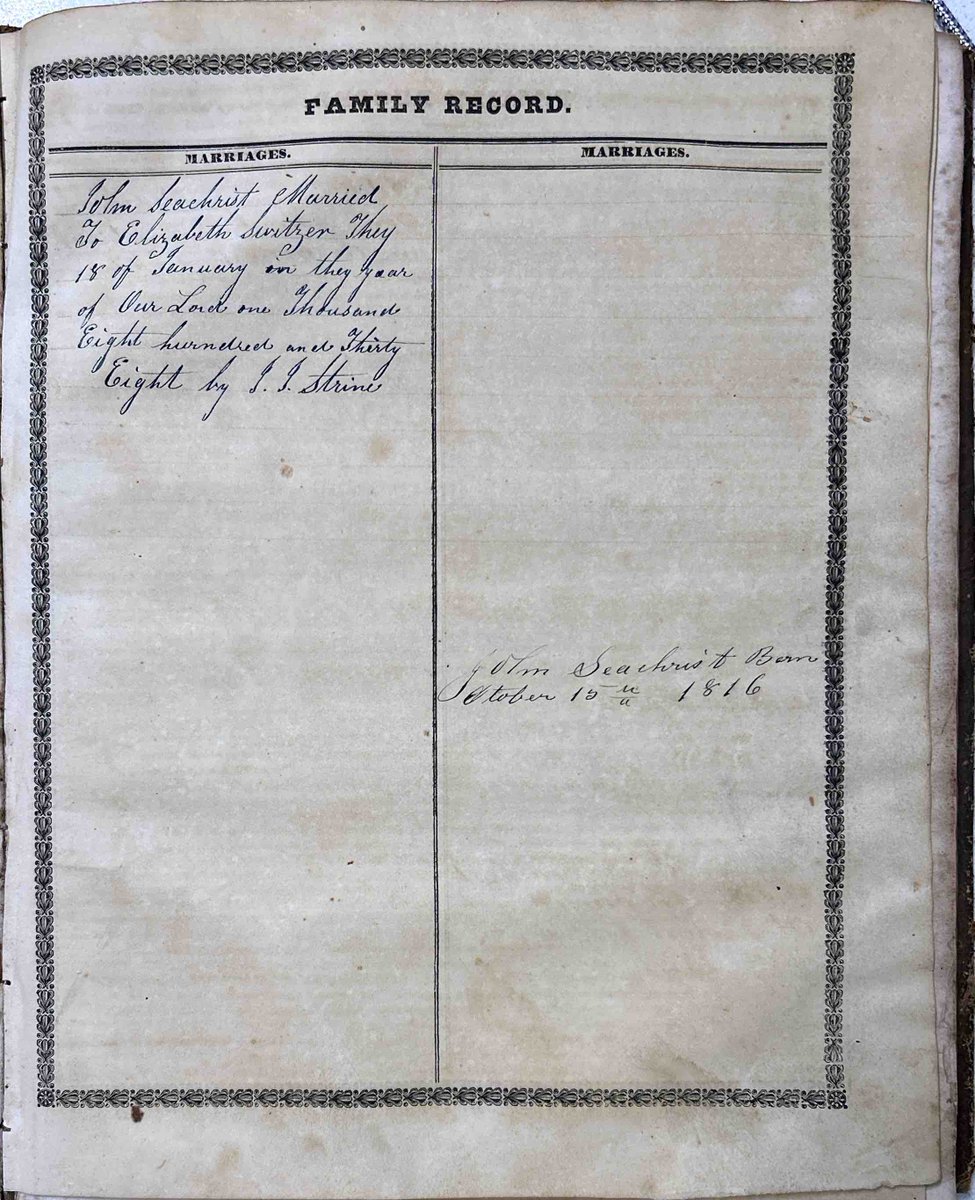 FAMILY RECORD.
MARRIAGES.
John Seachrist Married
To Elizabeth Switzer They
18 of January in they year
of Our Lord one Thousand
Eight hurndred and Thirty
Eight by J. J. Strine
MARRIAGES.
John Seachrist Born
October 15 1816